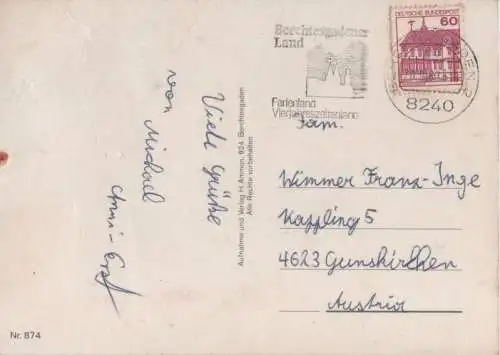 Viele Grüße
von Michael
Berchtesgadener
Land
Ferienland
Vierjahreszeitenland
DEUTSCHE BUNDESPOST
60
8240
Fam.
Wimmer Franz-Inge
Kappling 5
4623 Gunskirchen
Austria
Aufnahme und Verlag H. Ammon, 824 Berchtesgaden
Alle Rechte vorbehalten
Nr. 874